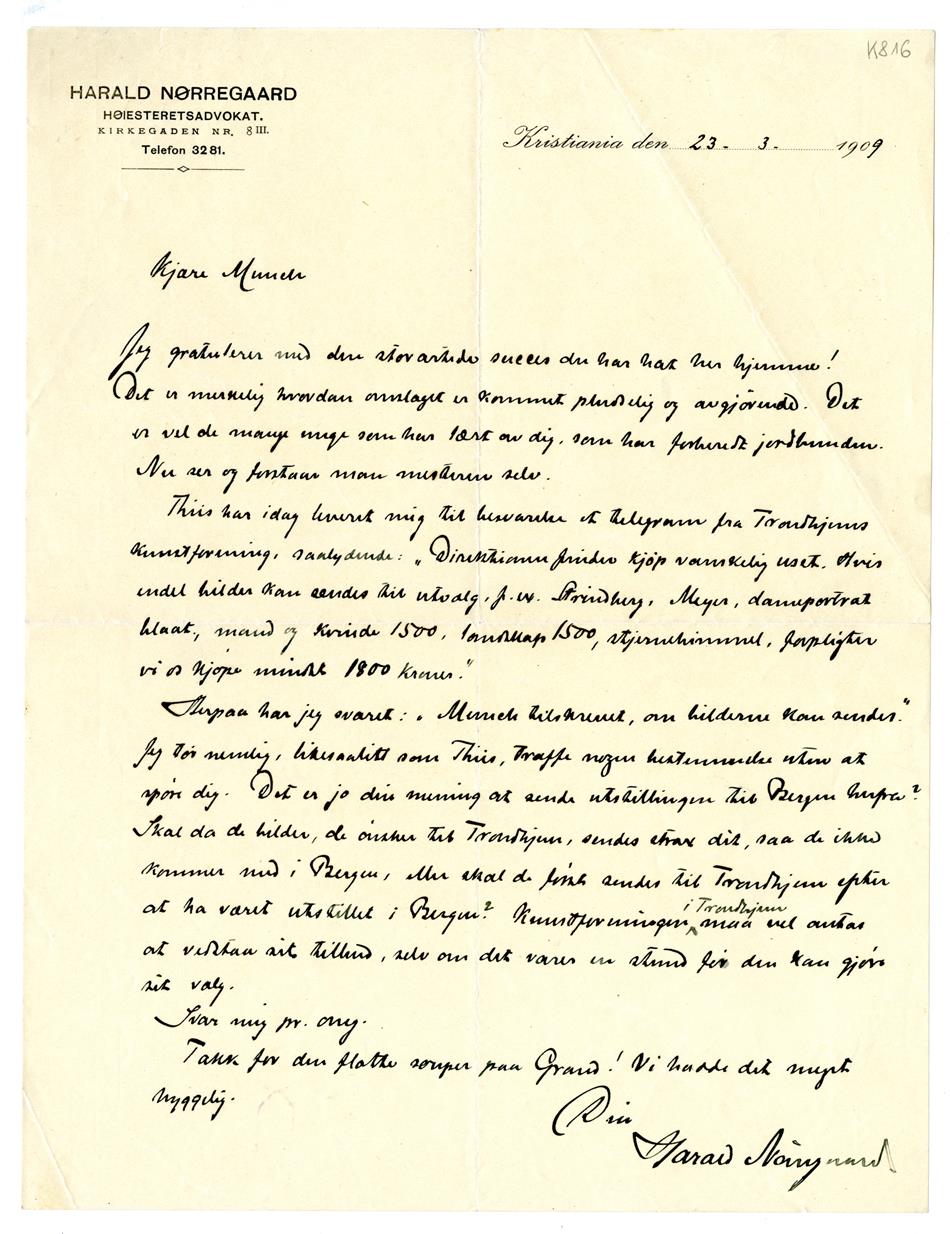 K816
HARALD NØRREGAARD
HØIESTERETSADVOKAT.
KIRKEGADEN NR. 8 III.
Telefon 3281.
Kristiania den 23 - 3 - 1909
Kjære Munch
Jeg gratulerer med den storartede succes du har hat her hjemme!
Det er merkelig hvordan omslaget er kommet pludselig og avgjörende. Det
er vel de mange unge som har lært av dig, som har forberedt jordbunden.
Nu ser og forstaar man mesteren selv.
Thiis har idag leveret mig til besvarelse et telegram fra Trondhjems
Kunstforening, saalydende: „Direktionen finder kjøp vanskelig uset. Hvis
endel bilder kan sendes til utvalg, f. ex. Strindberg, Meyer, dameportræt
blaat, mand og kvinde 1500, landskap 1500, stjernehimmel, forpligter
vi os kjöpe mindst 1800 kroner."
Herpaa har jeg svaret: „Munch tilskrevet, om bilderne kan sendes."
Jeg tör nemlig, likesaalitt som Thiis, træffe nogen bestemmelse uten at
spöre dig. Det er jo din mening at sende utstillingen til Bergen herfra?
Skal da de bilder, de önsker til Trondhjem, sendes strax dit, saa de ikke
kommer med i Bergen, eller skal de först sendes til Trondhjem efter
at ha været utstillet i Bergen? Kunstforeningen i Trondhjem maa vel antas
at vedstaa sit tilbud, selv om det varer en stund för den kan gjöre
sit valg.
Svar mig pr. omg.
Takk for den flotte souper paa Grand! Vi hadde det meget
hyggelig.
Din
Harald Nörregaard